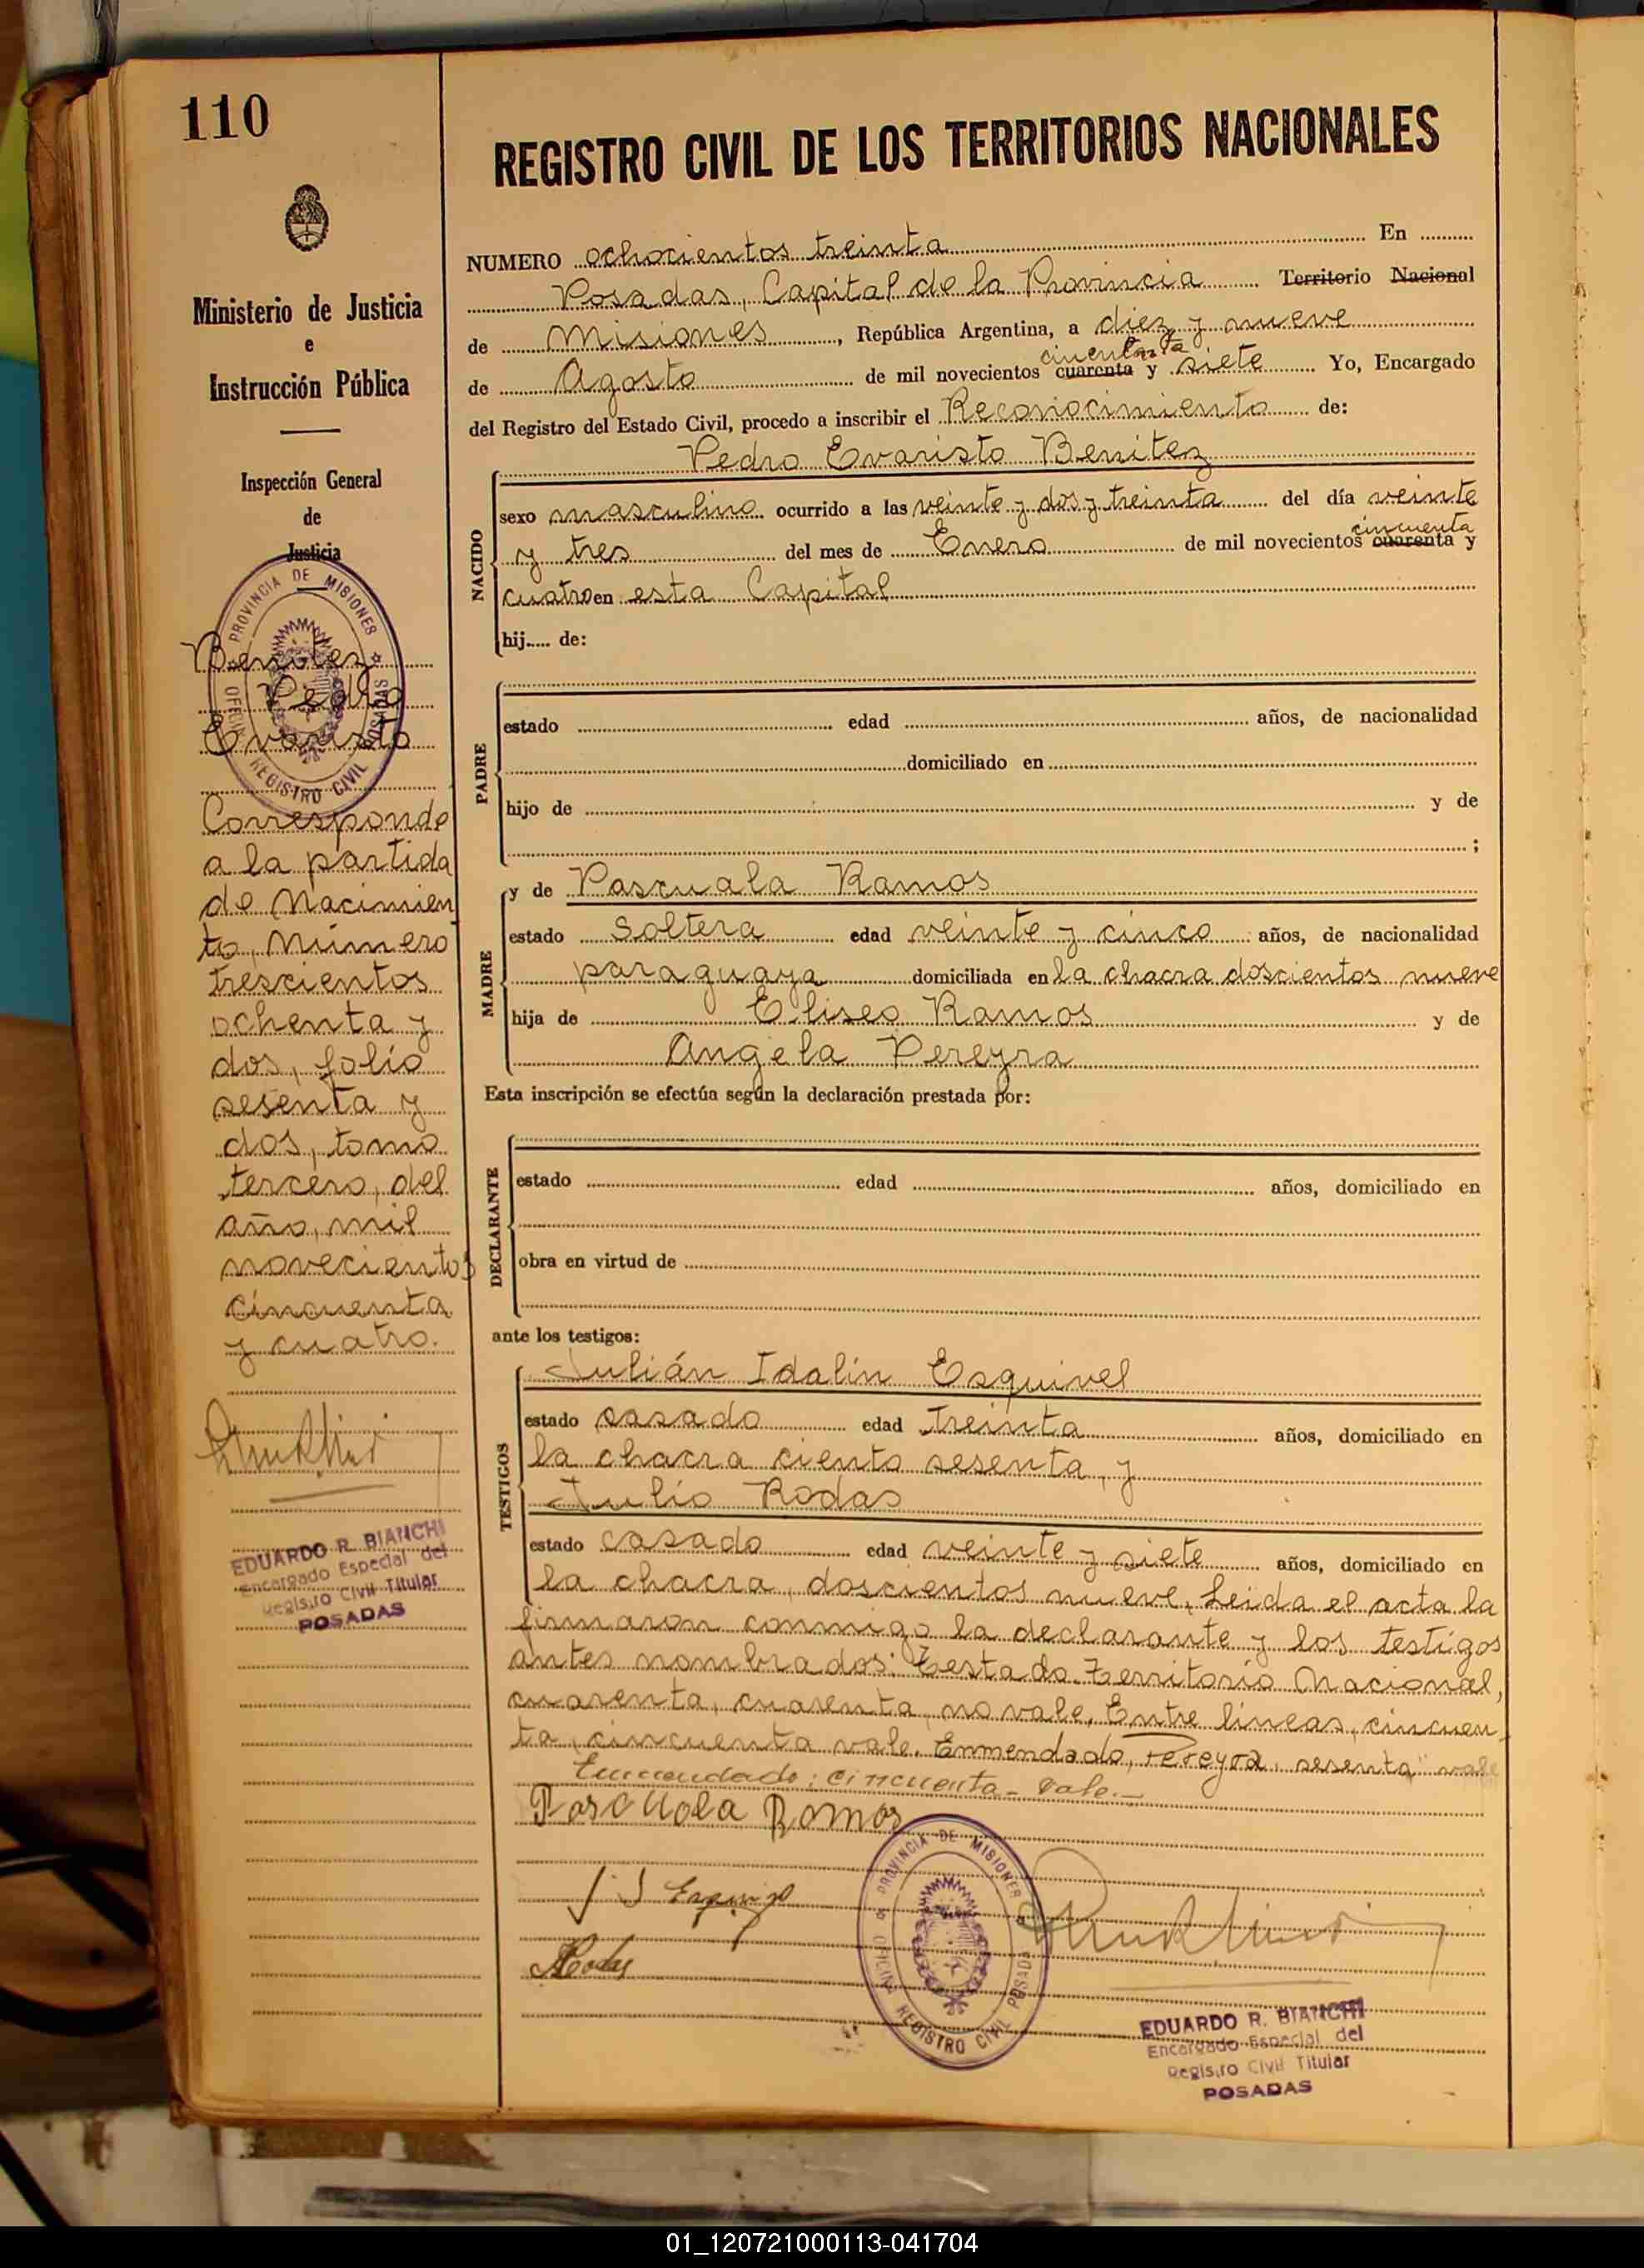 110
REGISTRO CIVIL DE LOS TERRITORIOS NACIONALES
Ministerio de Justicia
e
Instrucción Pública
Inspección General
de
Justicia
PROVINCIA DE MISIONES
OFICINA REGISTRO CIVIL POSADAS
Benitez
Pedro
Evaristo
Corresponde
a la partida
de Nacimien
to, número
trescientos
ochenta y
dos, folio
sesenta y
dos, tomo
tercero, del
año, mil
novecientos
cincuenta
y cuatro.
EDUARDO R. BIANCHI
Encargado Especial del
Registro Civil Titular
POSADAS
NUMERO ochocientos treinta En
Posadas, Capital de la Provincia Territorio Nacional
de Misiones, República Argentina, a diez y nueve
cincuenta
de Agosto de mil novecientos cuarenta y siete Yo, Encargado
del Registro del Estado Civil, procedo a inscribir el Reconocimiento de:
Pedro Evaristo Benitez
NACIDO
sexo masculino ocurrido a las veinte y dos y treinta del día veinte
cincuenta
y tres del mes de Enero de mil novecientos cuarenta y
cuatro en esta Capital
hij de:
PADRE
estado edad años, de nacionalidad
domiciliado en
hijo de y de
;
MADRE
y de Pascuala Ramos
estado Soltera edad veinte y cinco años, de nacionalidad
paraguaya domiciliada en la chacra doscientos nueve
hija de Eliseo Ramos y de
Angela Pereyra
Esta inscripción se efectúa según la declaración prestada por:
DECLARANTE
estado edad años, domiciliado en
obra en virtud de
ante los testigos:
TESTIGOS
Julián Idalin Esquivel
estado casado edad Treinta años, domiciliado en
la chacra ciento sesenta, y
Julio Rodas
estado casado edad veinte y siete años, domiciliado en
la chacra, doscientos nueve, Leida el acta la
firmaron conmigo la declarante y los testigos
antes nombrados: Testado. Territorio Nacional,
cuarenta, cuarenta, no vale. Entre lineas, cincuen
ta, cincuenta vale. Enmendado, Pereyra, sesenta vale
Enmendado: cincuenta - Vale.-
Pascuala Ramos
J. J Esquivel
Rodas
PROVINCIA DE MISIONES
OFICINA REGISTRO CIVIL POSADAS
EDUARDO R. BIANCHI
Encargado Especial del
Registro Civil Titular
POSADAS
01_120721000113-041704